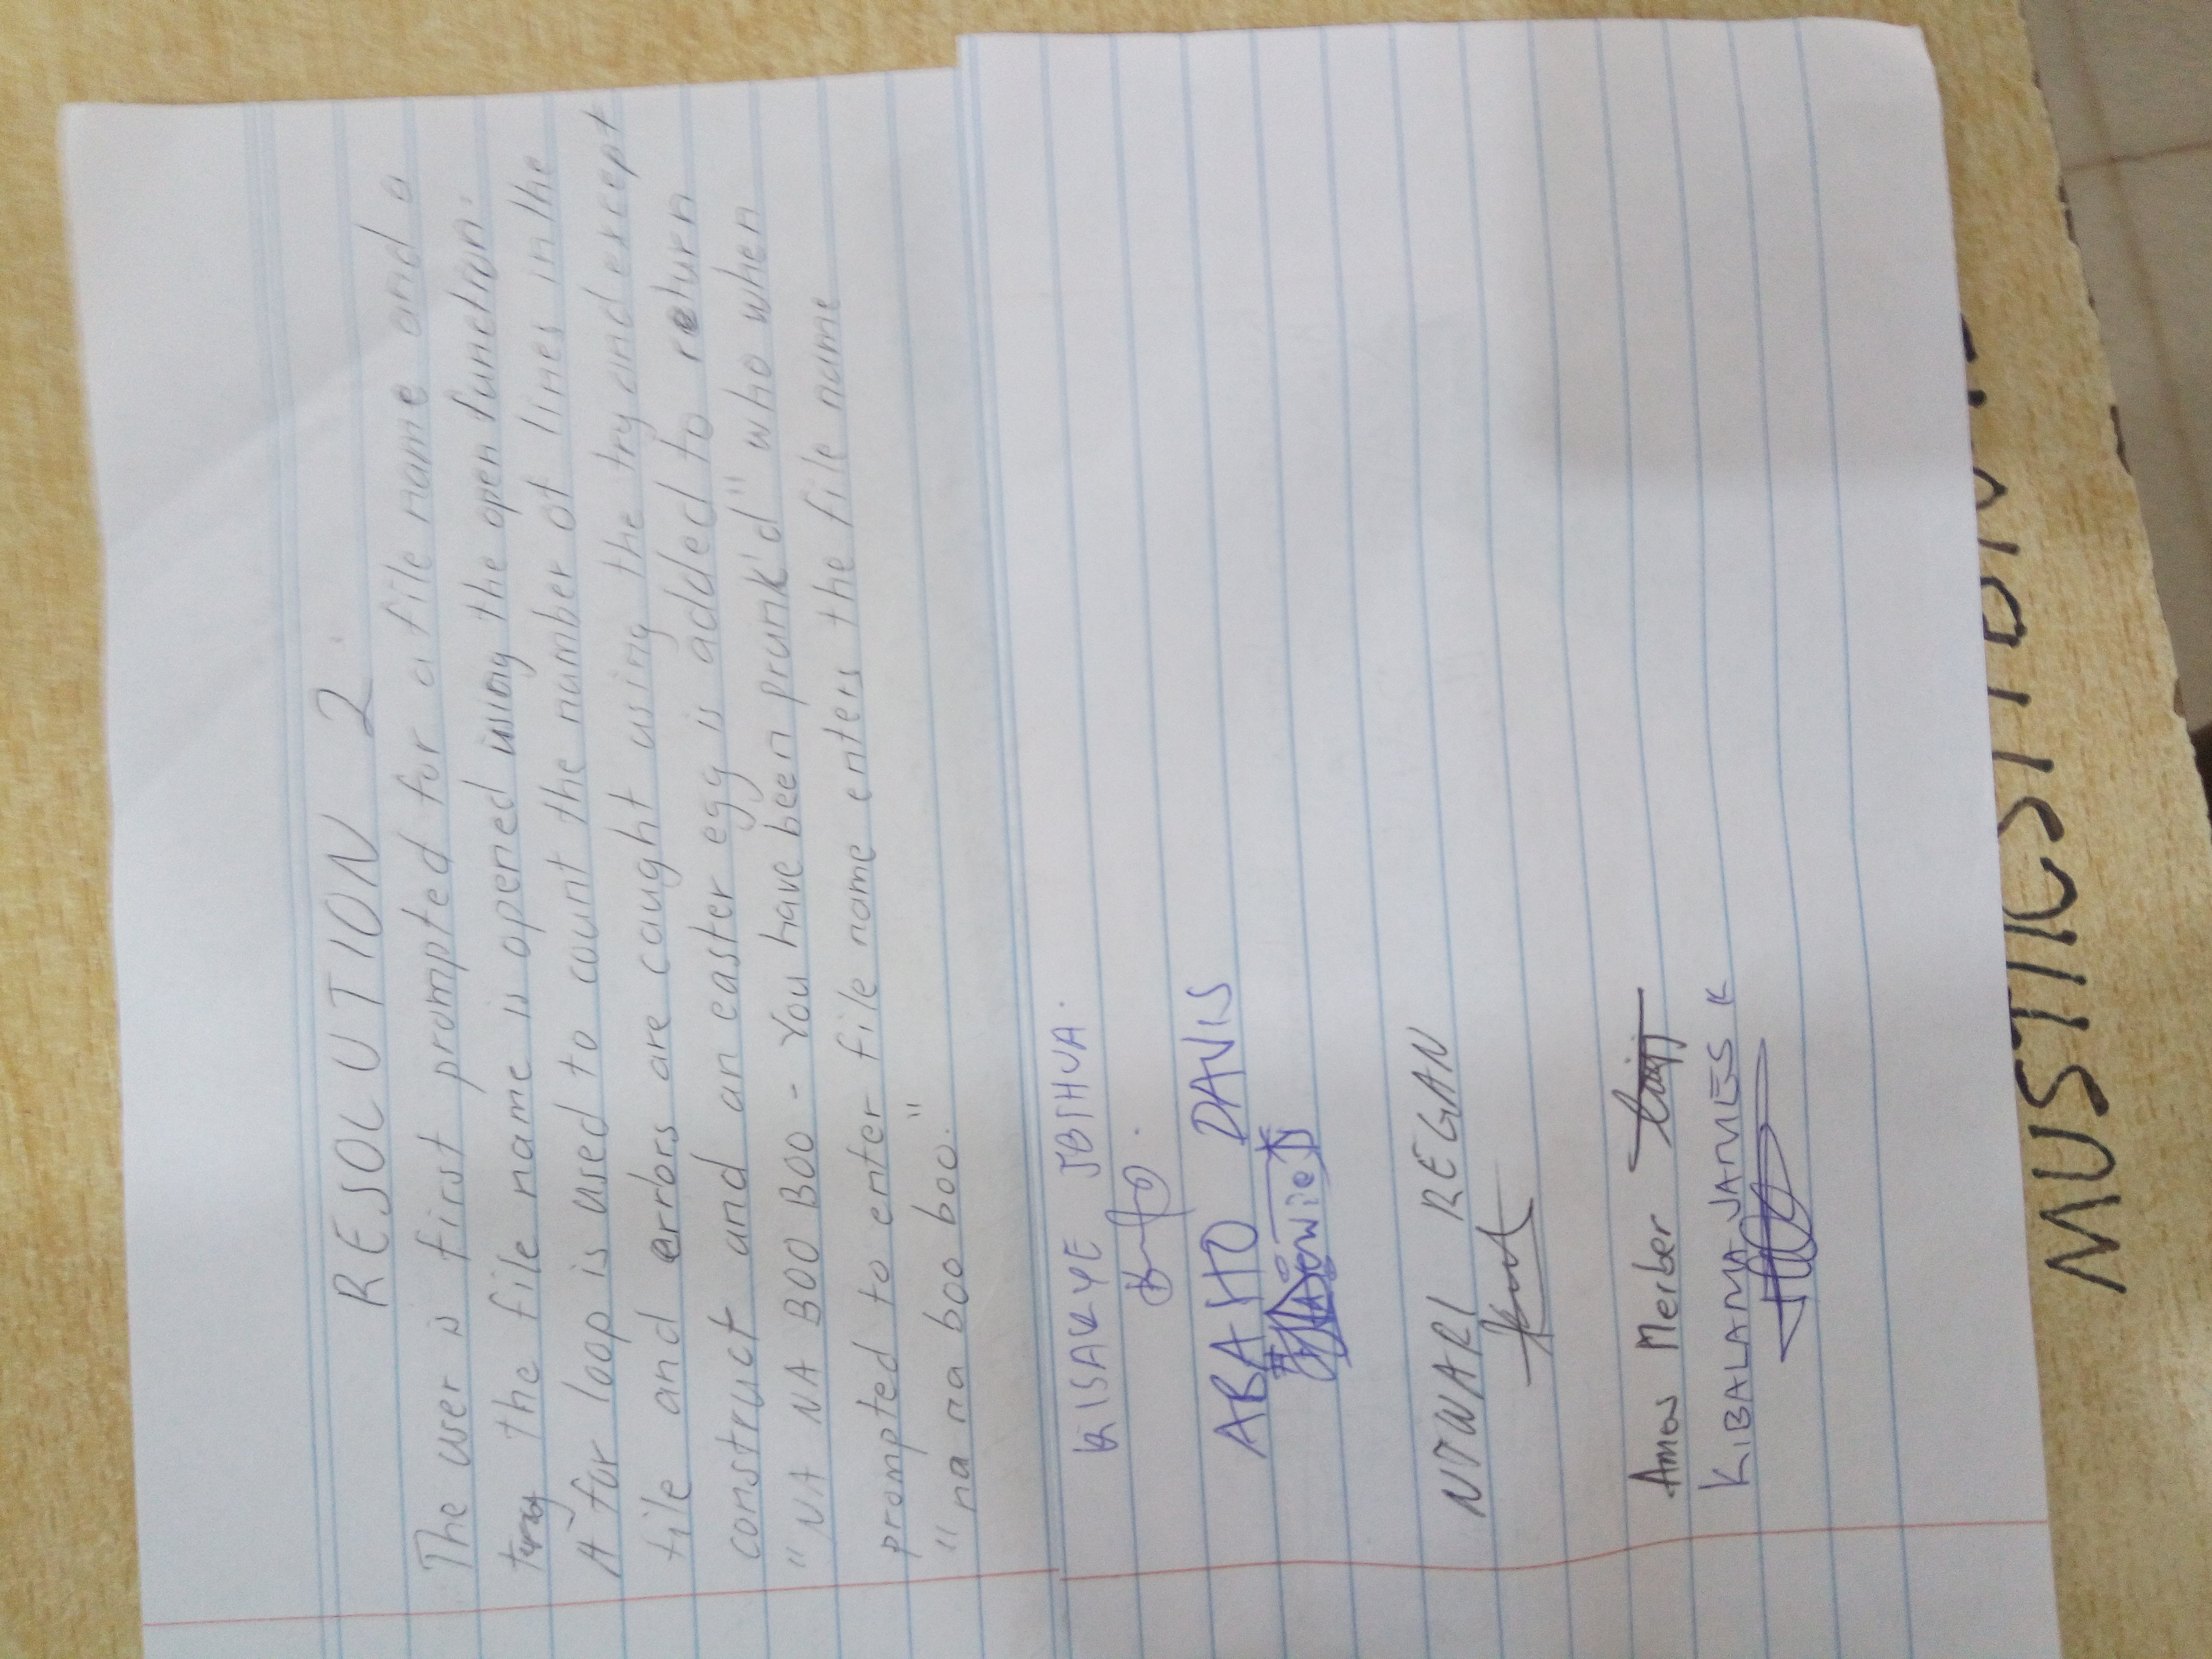 RESOLUTION 2
The user is first prompted for a file name and a
the file name is opened using the open function.
A for loop is used to count the number of lines in the
file and errors are caught using the try and except
construct and an easter egg is added to return
"NA NA BOO BOO - You have been prunk'd" who when
prompted to enter file name enters the file name
"na na boo boo."
KISAKYE JOSHUA.
ABAHO DAVIS
NTWARI REGAN
Amos Merber
KIBALAMA JAMES K